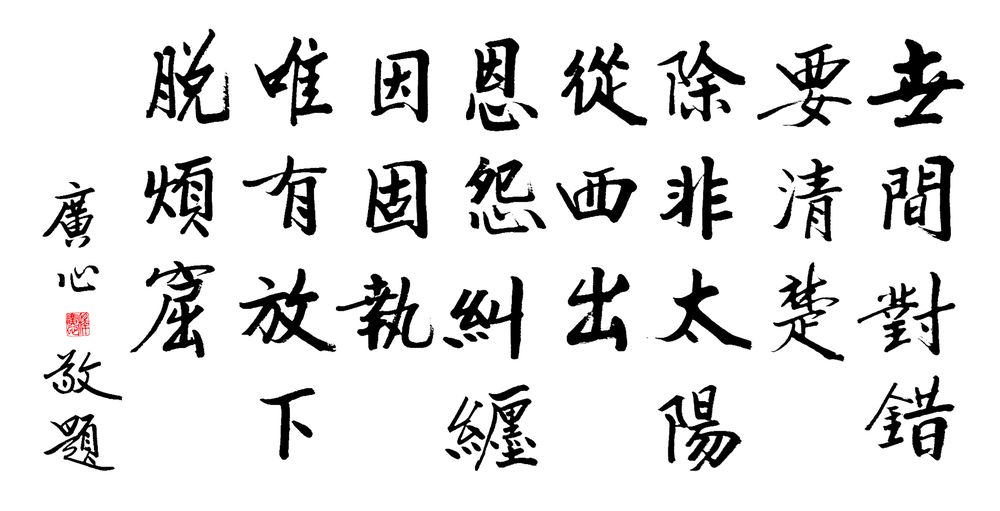 世間對錯
要清楚
除非太陽
從西出
恩怨糾纏
因固執
唯有放下
脫煩窟
廣心敬題